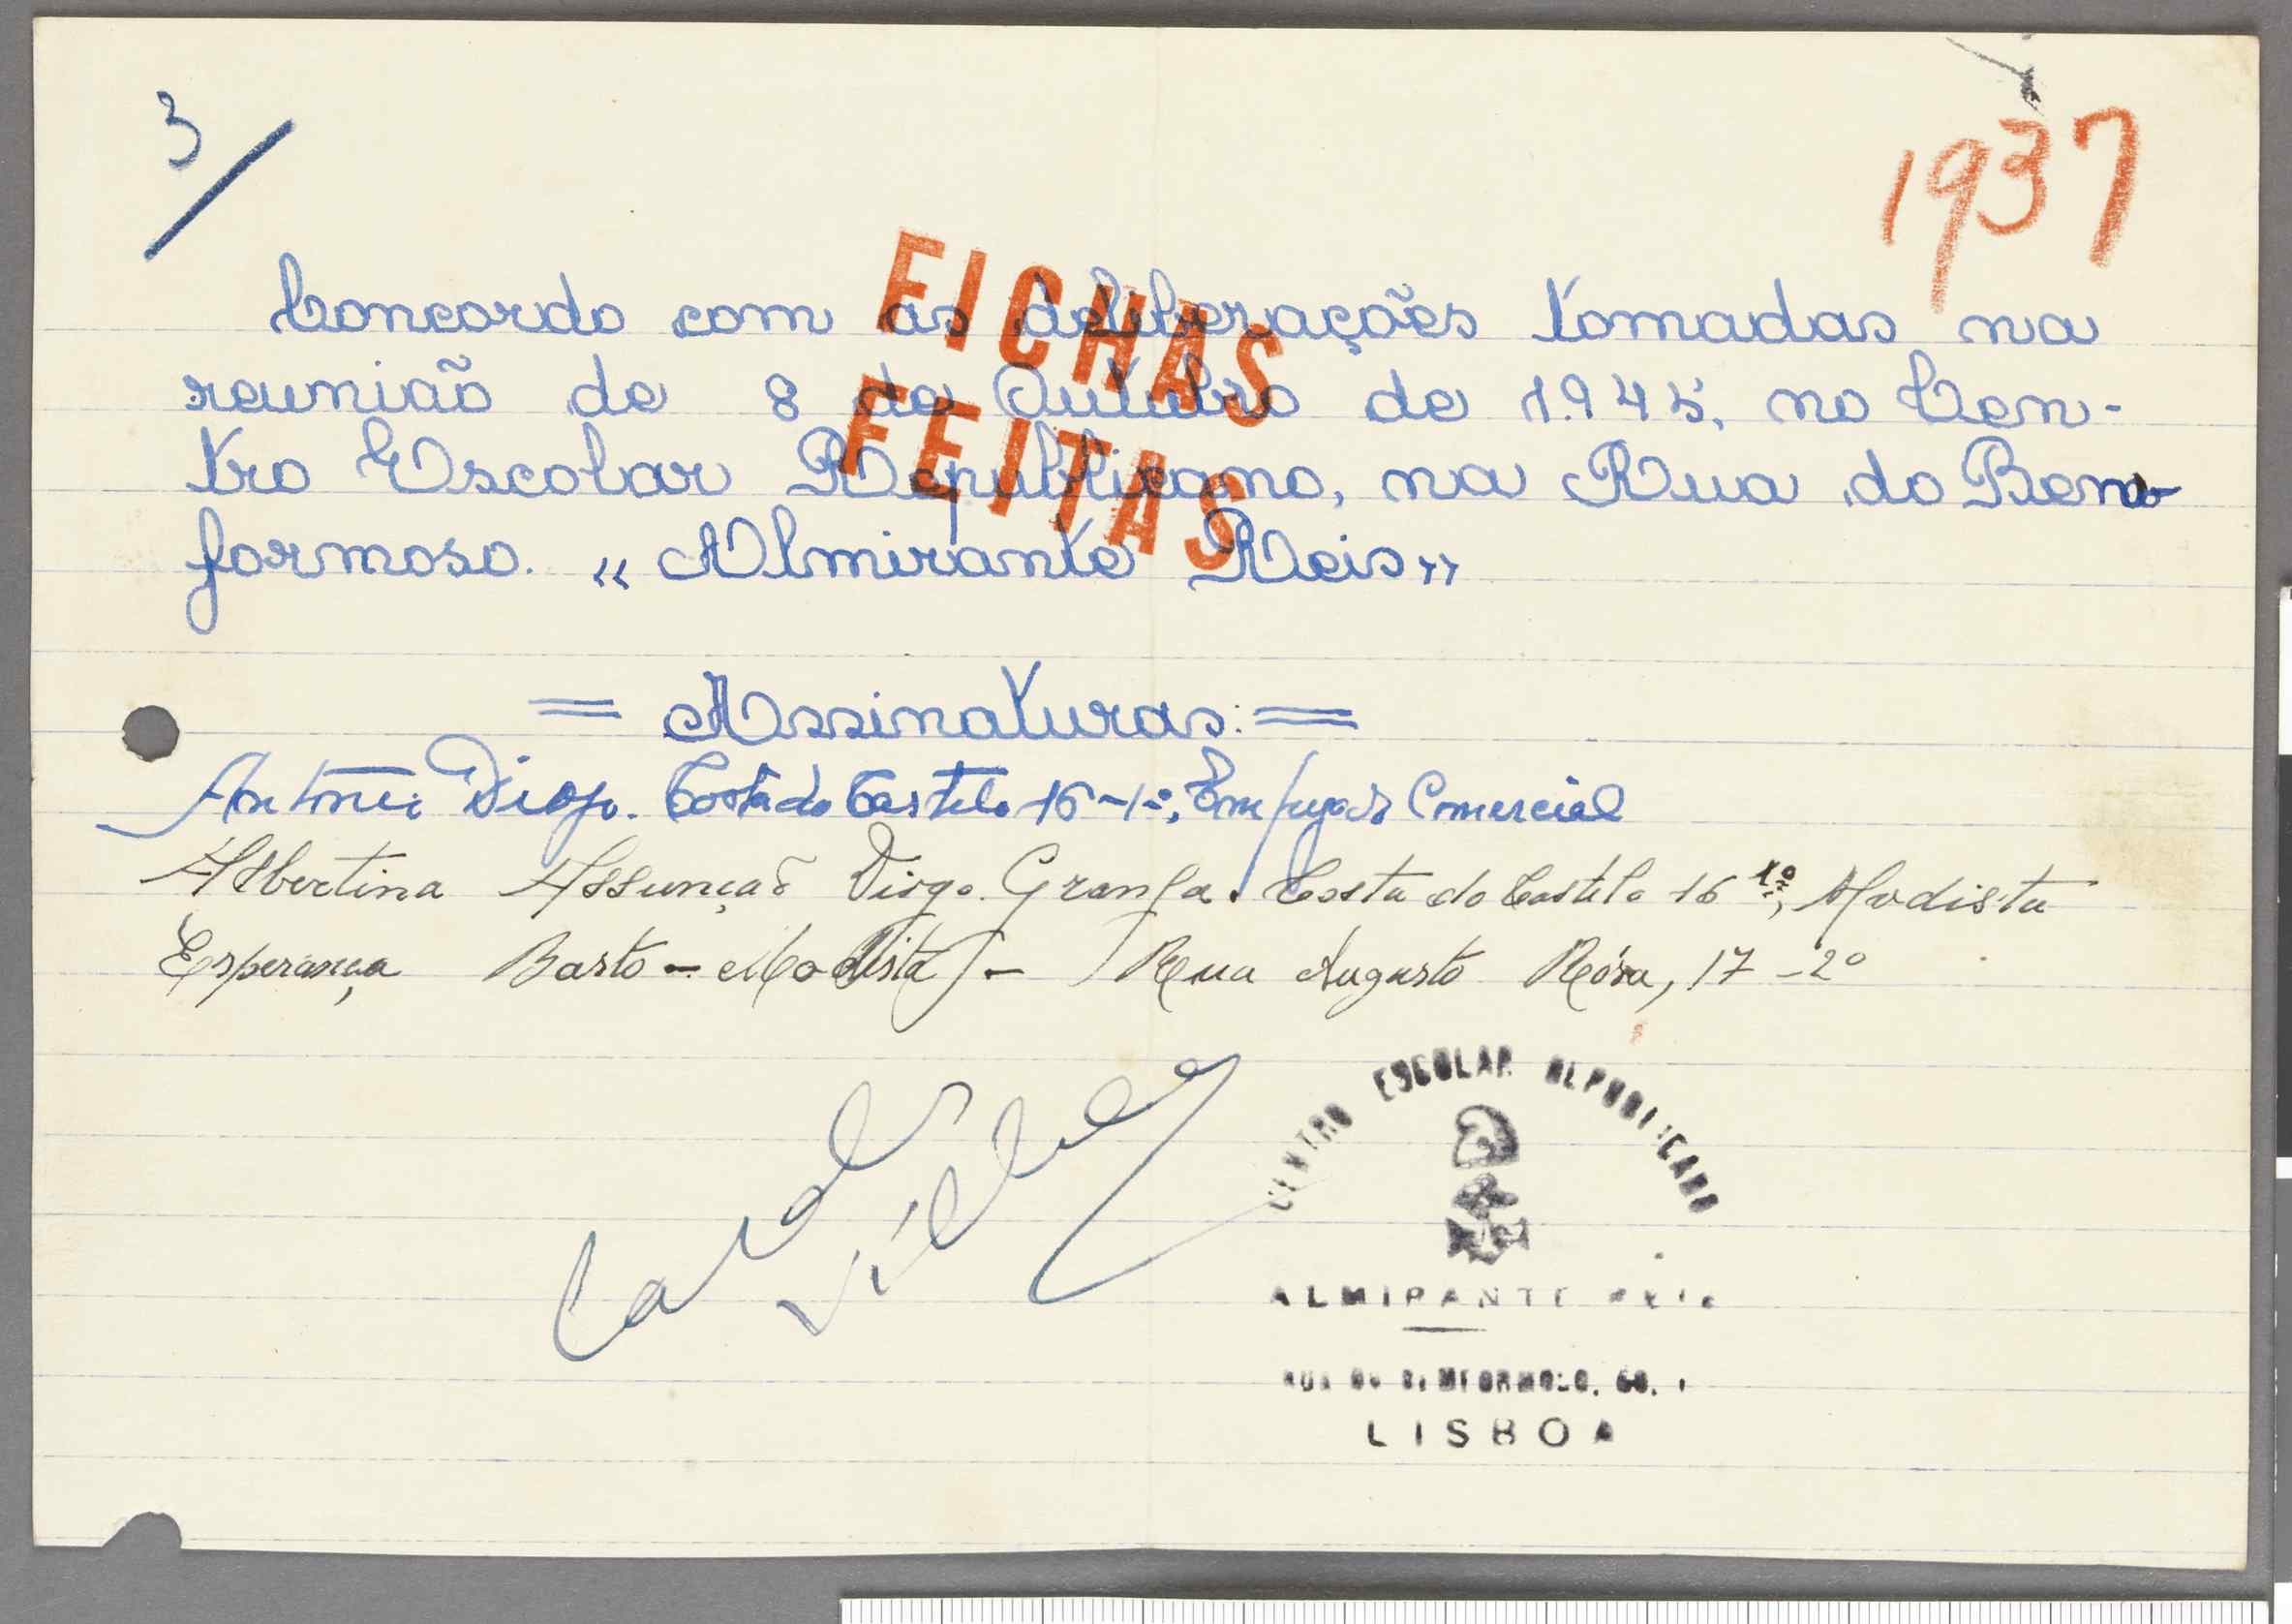 3
1937
FICHAS
FEITAS
Concordo com as deliberações tomadas na
reunião de 8 de Outubro de 1945, no Cen-
tro Escolar Republicano, na Rua do Bem-
formoso. « Almirante Reis »
= Assinaturas: =
António Diogo. Costa do Castelo 16-1º, Empregado Comercial
Albertina Assunção Diogo Granja. Costa do Castelo 16 1º, Modista
Esperança Basto - Modista - Rua Augusto Rósa, 17 - 2º
CENTRO ESCOLAR REPUBLICANO
ALMIRANTE REIS
RUA DO BEMFORMOSO, 50, 1
LISBOA